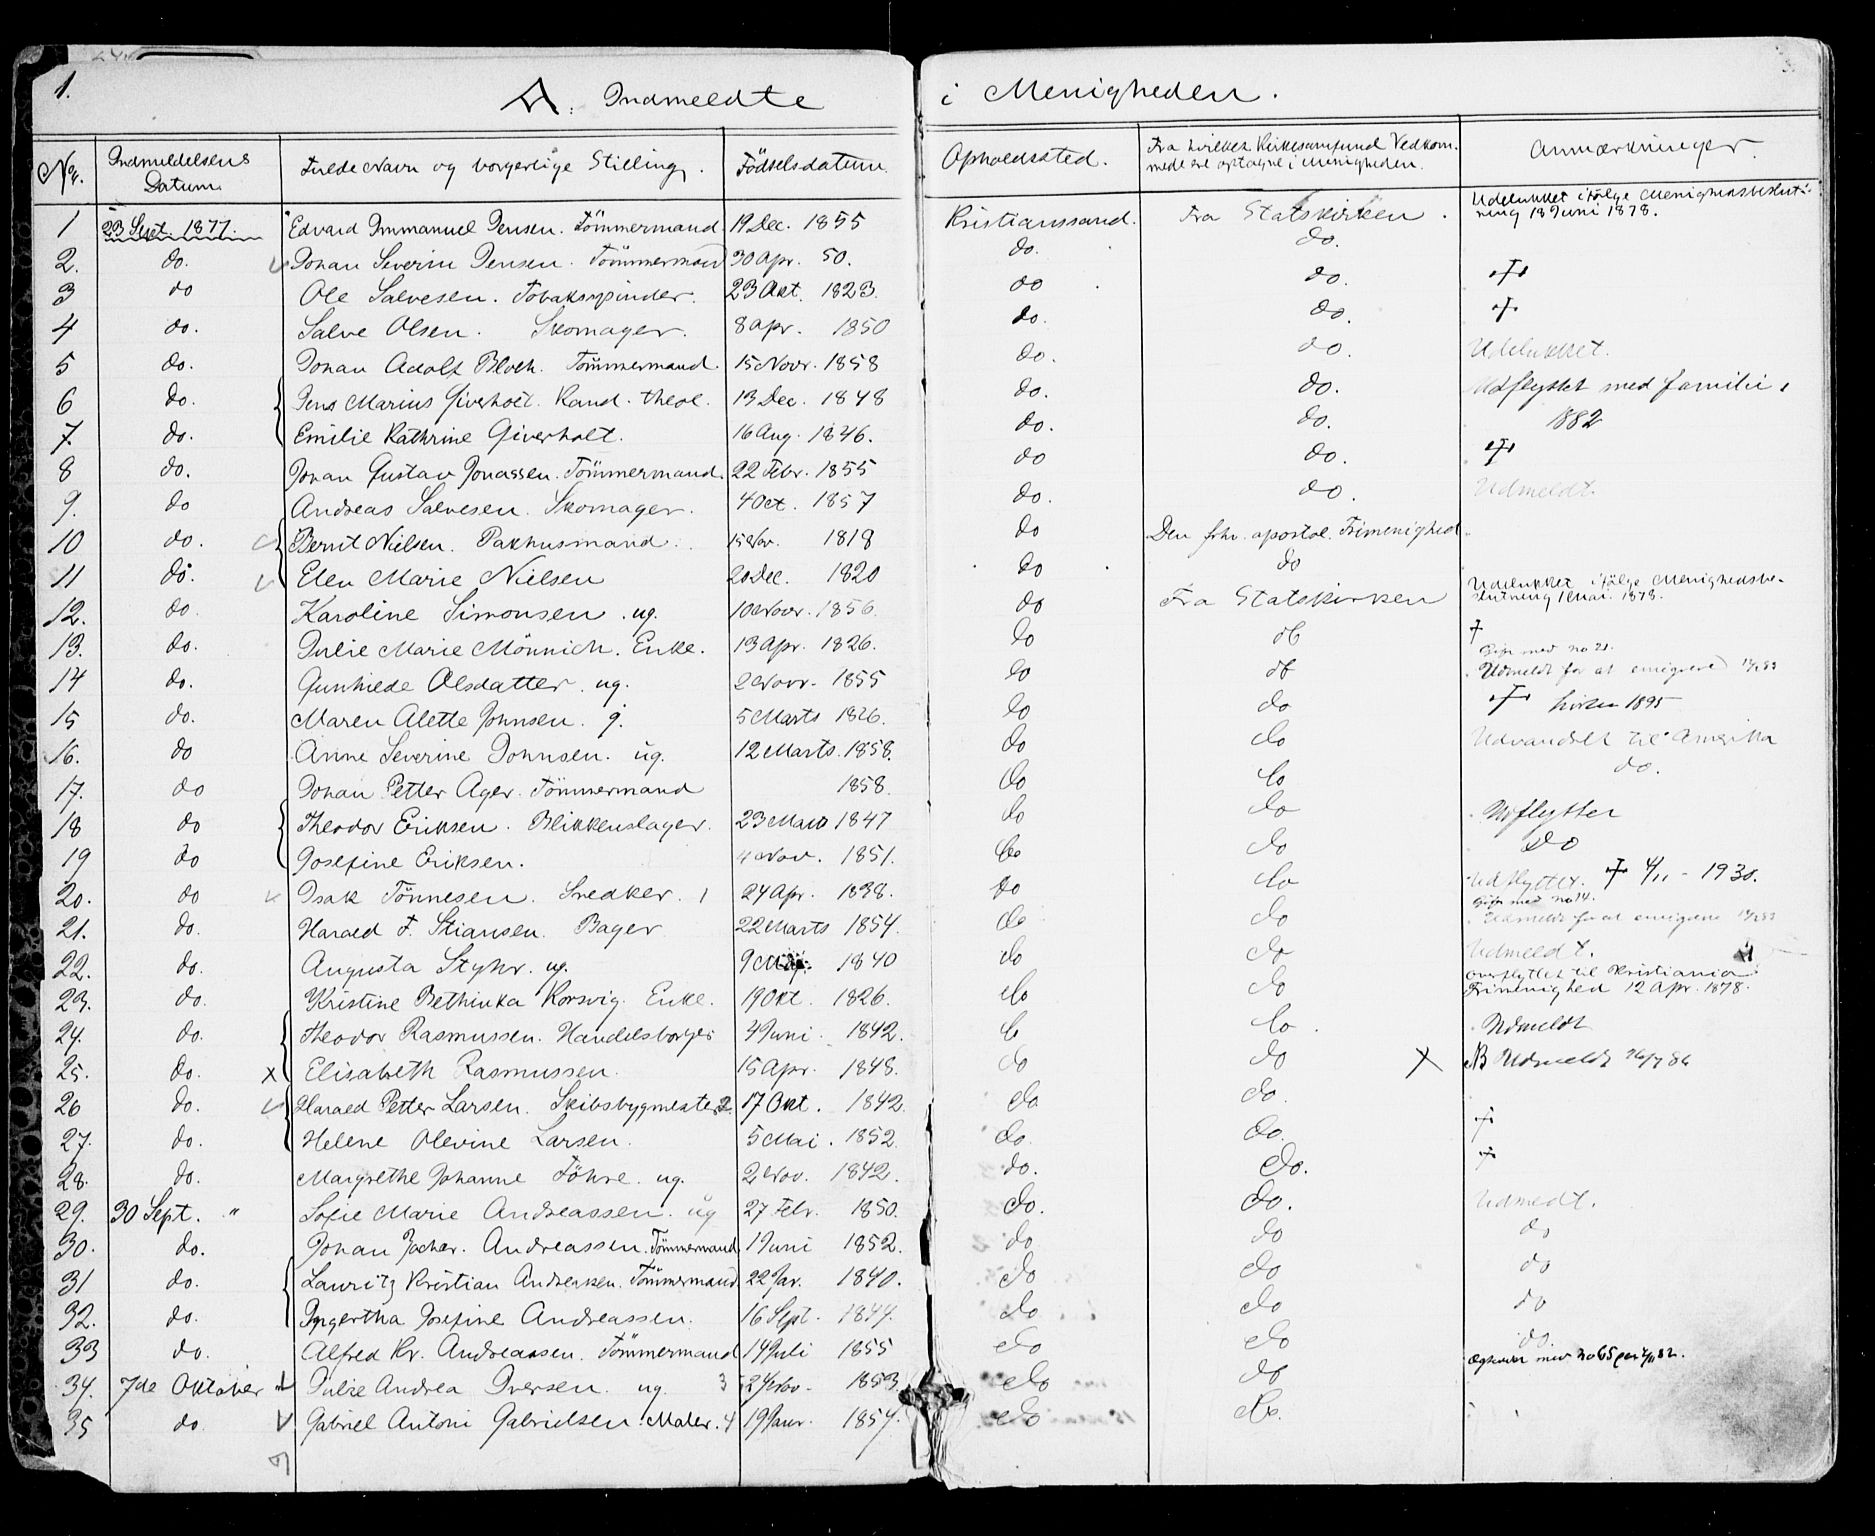 1.
A. Indmeldte i Menigheden.
No. Indmeldelsens Datum. Fulde Navn og borgerlige Stilling. Födselsdatum. Opholdssted. Fra hvilket Kirkesamfund Vedkommede ere optagne i Menigheden. Anmærkninger.
1 23 Sept. 1877. Edvard Immanuel Jensen. Tömmermand. 19 Dec. 1855 Kristianssand. Fra Statskirken. Udelukket ifölge Menighedsbeslutning 18 Juni 1878.
2. do. Johan Severin Jensen. Tömmermand 30 Apr. 50. do. do.
3 do Ole Salvesen. Tobakspinder. 23 Okt. 1823. do do. †
4 do. Salve Olsen. Skomager. 8 Apr. 1850 do. do. †
5 do. Johan Adolf Bloch. Tömmermand. 15 Novr. 1858 do. do. Udelukket.
6 do. Jens Marius Giverholt. Kand. theol. 13 Dec. 1848 do. do. Udflyttet med familie i
7. do. Emilie Kathrine Giverholt. 16 Aug. 1846. do. do. 1882
8 do. Johan Gustav Jonassen. Tömmermand. 22 Febr. 1855 do do. †
9. do Andreas Salvesen. Skomager. 4 Oct. 1857 do. do. Udmeldt.
10 do. Bernt Nielsen. Pakhusmand. 15 Nov. 1819 do Den frhv. apostol. Frimenighed
11 do. Elen Marie Nielsen 20 Dec. 1820 do do
12. do. Karoline Simonsen. ug. 10 Novr. 1856. do Fra Statskirken Udelukket ifölge Menighedsbeslutning 1 Mai. 1878.
13. do. Julie Marie Mönnich. Enke. 13 Apr. 1826. do do †
14 do. Gunhilde Olsdatter. ug. 2 Novr. 1855 do do Gift med no 21. Udmeldt for at emigrere
15 do. Maren Alette Johnsen. g. 5 Marts 1826. do do † 1895
16. do Anne Severine Johnsen. ug. 12 Marts. 1858. do do Udvandret til Amerika
17. do Johan Petter Ager. Tömmermand 1858. do do do.
18 do Theodor Eriksen. Blikkenslager. 23 Mars 1847 do do Udflyttet
19 do Josefine Eriksen. 4 Nov. 1851. do do Do
20. do Isak Tönnesen. Snedker. 1 24 Apr. 1838. do do Udflyttet. † 4/11 - 1930.
21. do. Harald F. Stiansen. Bager 22 Marts 1854. do do Gift med no 14. Udmeldt for at emigrere
22. do. Augusta Styhr. ug. 9 1840 do do Udmeldt.
23. do. Kristine Bethinka Korsvig. Enke. 19 Okt. 1826. do do Overflyttet til Kristiania Frimenighed 12 Apr. 1878.
24. do. Theodor Rasmussen. Handelsborger 4 Juni 1842. do do. Udmeldt
25. do. X Elisabeth Rasmussen. 15 Apr. 1848. do do X NB Udmeldt
26 do. Harald Petter Larsen. Skibsbygmester 2. 17 Okt. 1842. do do.
27. do. Helene Olevine Larsen. 5 Mai. 1852. do. do. †
28. do. Margrethe Johanne Föhre. ug. 2 Nov. 1842. do. do. †
29. 30 Sept. " Sofie Marie Andreassen. ug 27 Febr. 1850. do. do. Udmedt.
30. do. Johan Jochar. Andreassen. Tömmermand. 1 Juni 1852. do do do
31 do. Lauritz Kristian Andreassen. Tömmermand. 22 Jan. 1840. do do do
32. do. Ingertha Josefine Andreassen. 16 Sept. 1844. do do do
33 do. Alfred Kr. Andreassen. Tömmermand 14 Juli 1855 do do do.
34. 7de Oktober Julie Andrea Iversen. ug. 3 24 Nov. 1853. do do Ægteviet med No 65
35 do. Gabriel Antoni Gabrielsen. Maler. 4 19 Janr. 1854. do do.